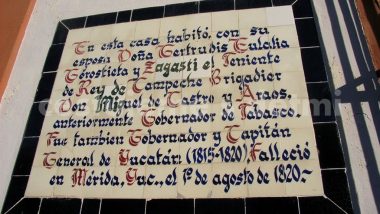 En esta casa habitó, con su
esposa Doña Gertrudis Eulalia
Gorostieta y Zagasti el Teniente
de Rey de Campeche Brigadier
Don Miguel de Castro y Araos,
anteriormente Gobernador de Tabasco.
Fue tambien Gobernador y Capitán
General de Yucatán (1815-1820), Falleció
en Mérida, Yuc., el 1º de agosto de 1820~